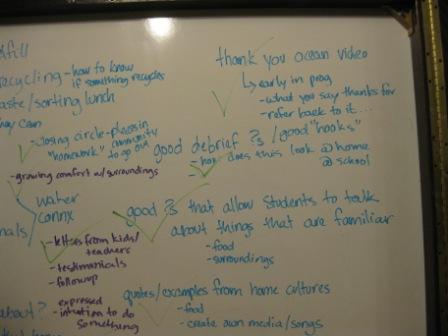 fill
recycling - how to know
if something recycles
aste/sorting lunch
hey can
- closing circle - places in
community
"homework" to go out
- growing comfort w/surroundings
water
connx
nals/
- letters from kids/
teachers
- testimonicals
- followup
about?
expressed
- intention to do
something
thank you ocean video
↳ early in prog
- what you say thanks for
- refer back to it...
good debrief ?s / good "hooks"
- how does this look @ home
@ school
good ?s that allow students to talk
about things that are familiar
- food
- surroundings
quotes/examples from home cultures
- food
- create own media/songs